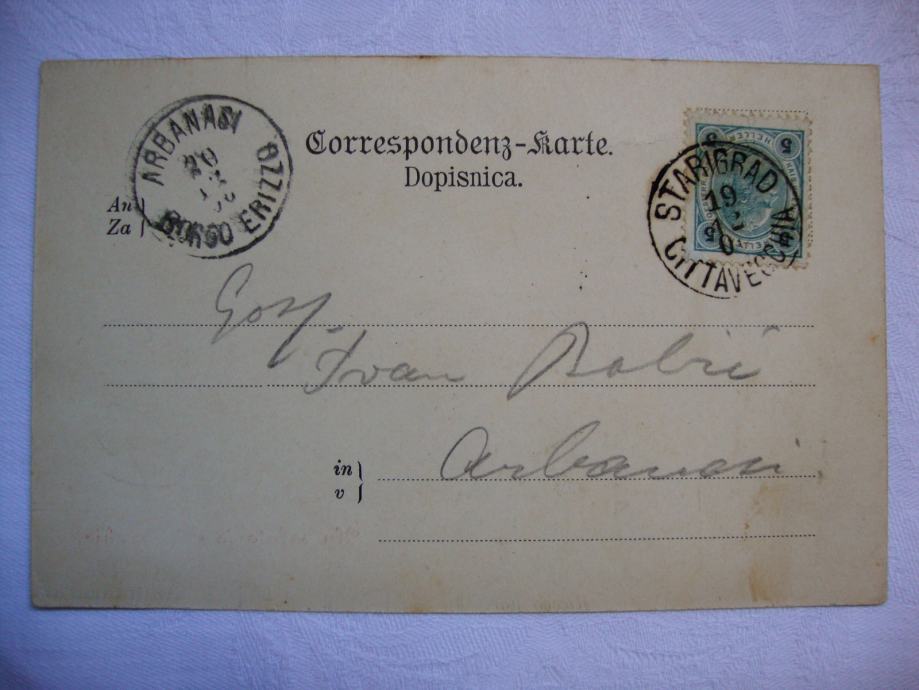 Correspondenz-Karte.
Dopisnica.
ARBANASI
20
BORGO ERIZZO
STARIGRAD
19
CITTAVECCHIA
5 5
HELLER
An
Za
Gosp.
Ivan Babić
in
v
Arbanasi